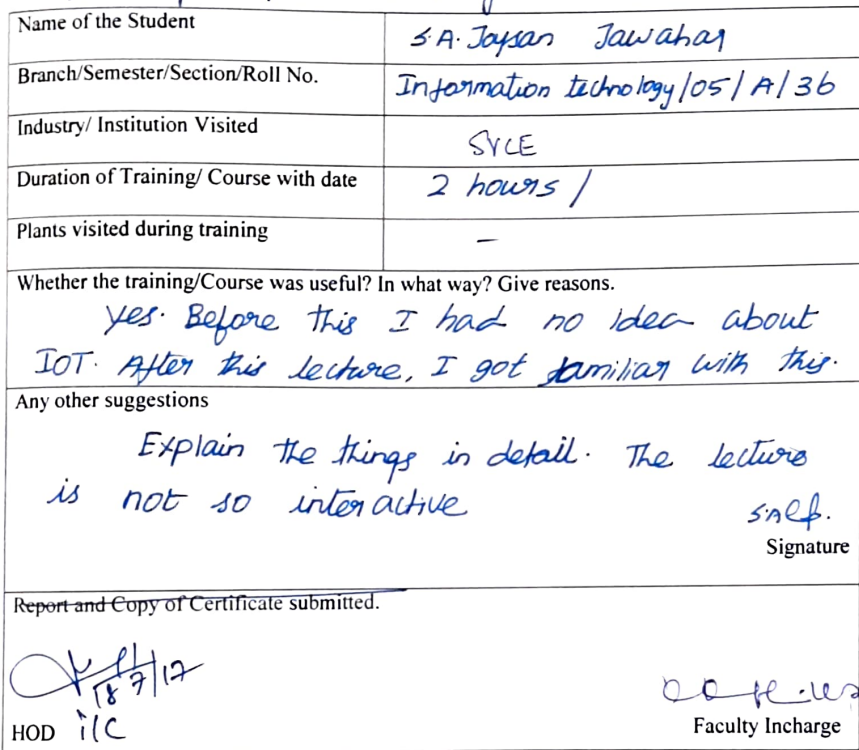 Name of the Student S.A. Jaysan Jawahar
Branch/Semester/Section/Roll No. Information technology/05/A/36
Industry/ Institution Visited SVCE
Duration of Training/ Course with date 2 hours /
Plants visited during training -
Whether the training/Course was useful? In what way? Give reasons.
Yes. Before this I had no idea about
IOT. After this lecture, I got familiar with this.
Any other suggestions
Explain the things in detail. The lecture
is not so interactive
Signature
Report and Copy of Certificate submitted.
18/7/17
HOD i/c
Faculty Incharge